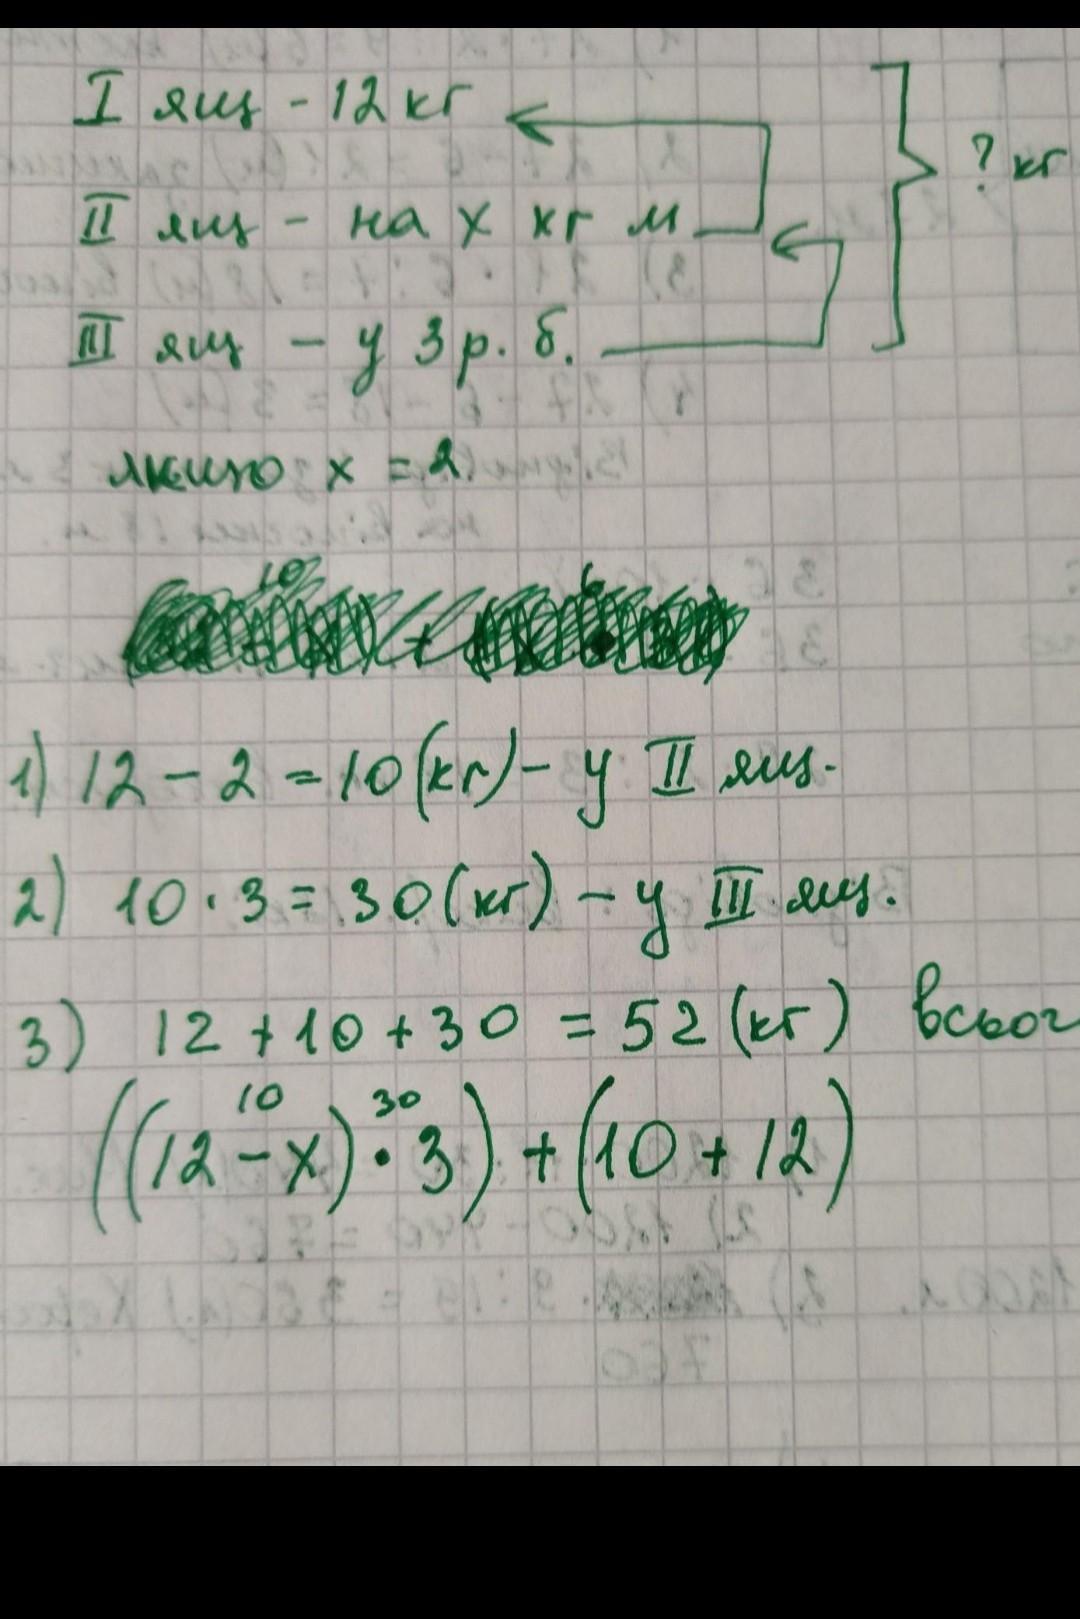 I ящ - 12 кг
II ящ - на х кг м
III ящ - у 3 р. б.
? кг
якщо х = 2
10 + 6
1) 12 - 2 = 10 (кг) - у II ящ.
2) 10 · 3 = 30 (кг) - у III ящ.
3) 12 + 10 + 30 = 52 (кг) всьог
10 30
((12 - х) · 3) + (10 + 12)